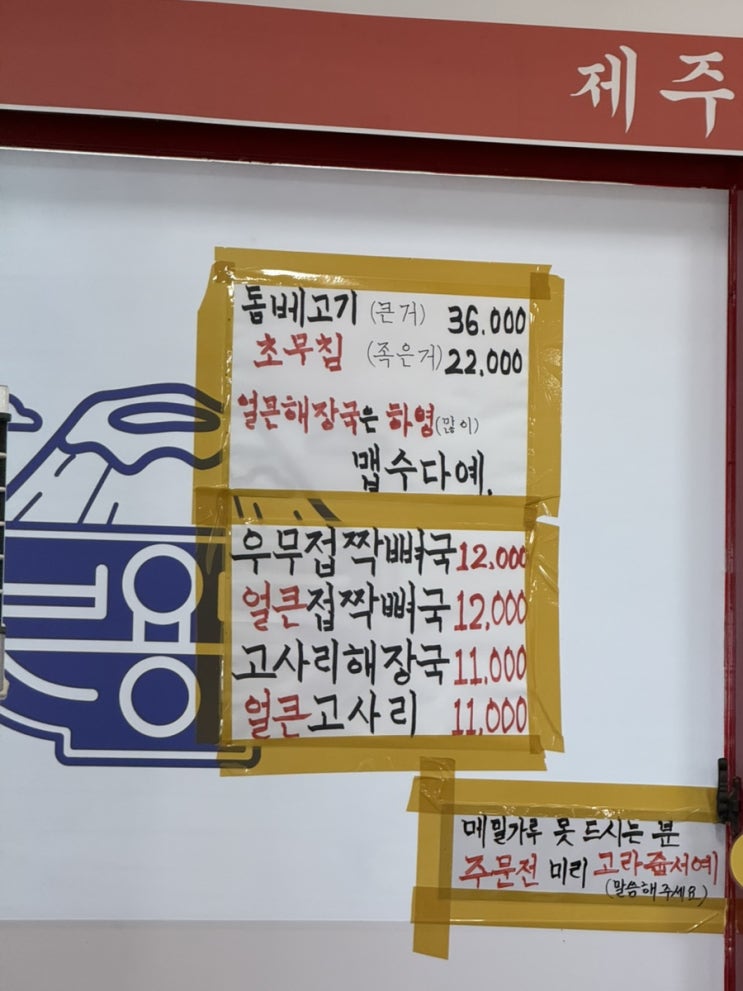 제주
돔베고기 (큰거) 36.000
초무침 (족은거) 22,000
얼큰해장국은 하영(많이)
맵수다예.
우무접짝뼈국 12,000
얼큰접짝뼈국 12,000
고사리해장국 11,000
얼큰고사리 11,000
메밀가루 못 드시는 분
주문전 미리 고라줍서예
(말씀해주세요)